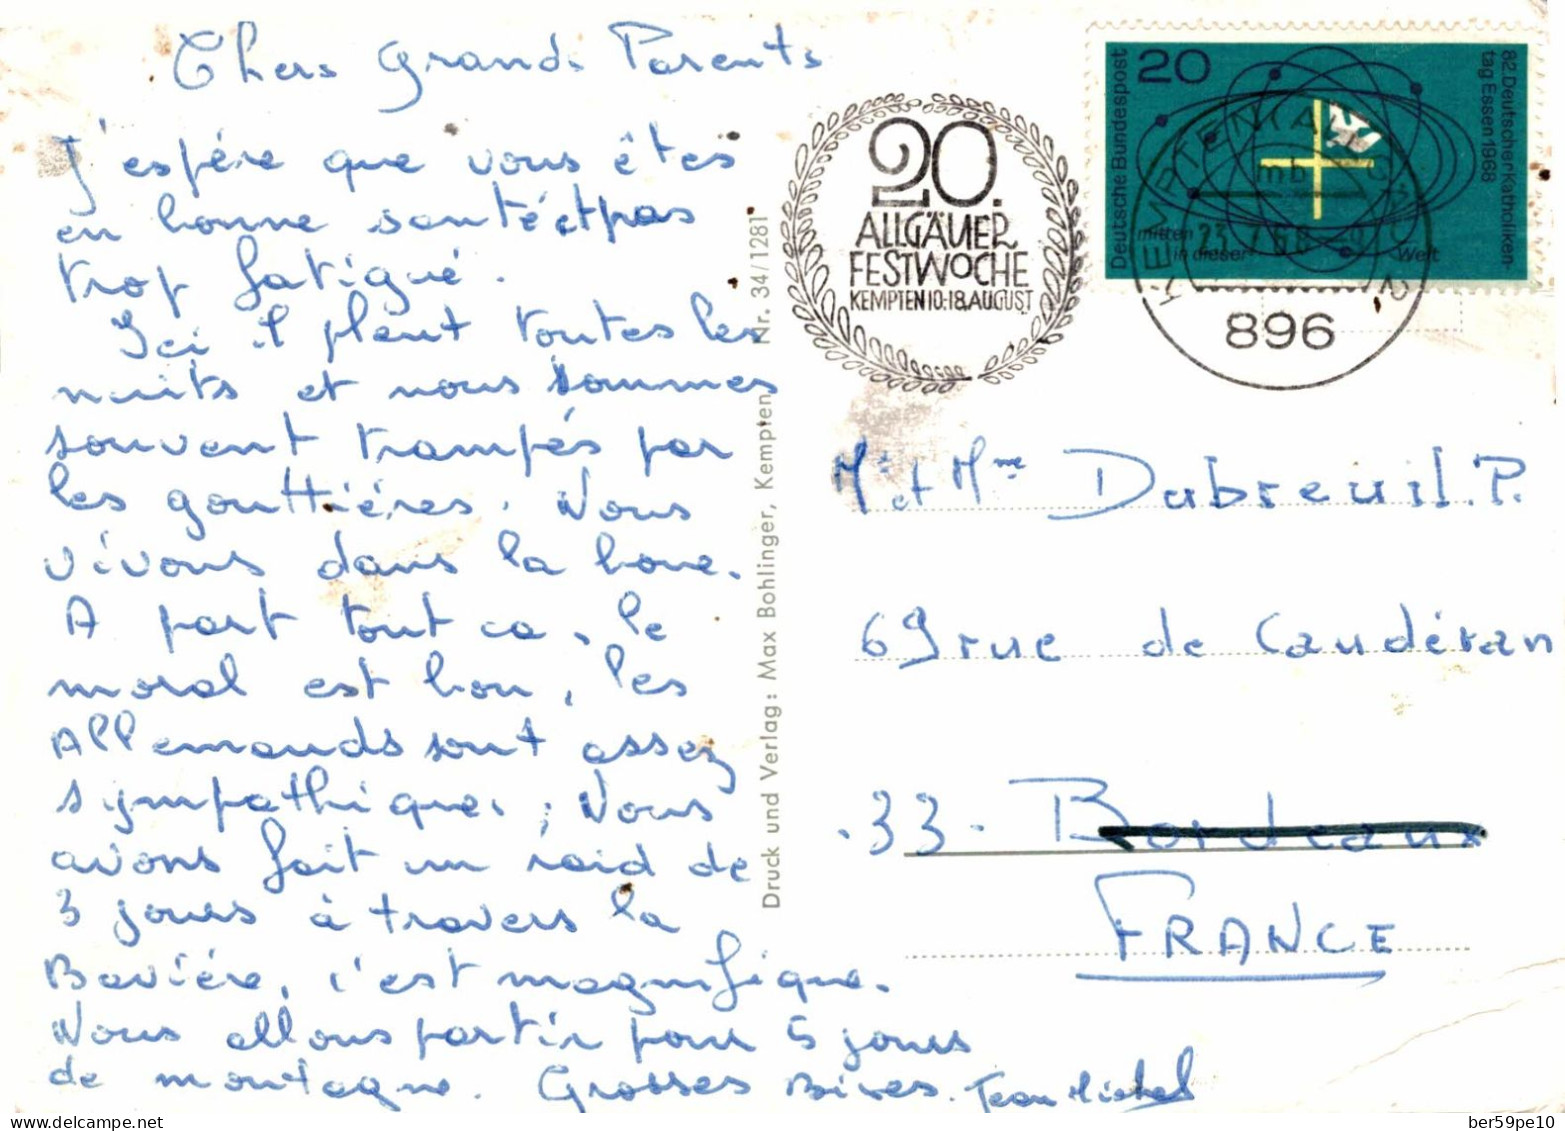 Chers Grands Parents
J'espère que vous êtes
en bonne santé et pas
trop fatigué.
Ici il pleut toutes les
nuits et nous sommes
souvent trampés par
les gouttiéres. Nous
vivons dans la boue.
A part tout ca, le
moral est bon, les
Allemands sont assez
sympathique. ; Nous
avons fait un raid de
3 jours à travers la
Baviére, c'est magnifique.
Nous allons partir pour 5 jours
de montagne. Grosses Bises. Jean Michel
Nr. 34/1281
Druck und Verlag: Max Bohlinger, Kempten
20.
ALLGÄUER
FESTWOCHE
KEMPTEN 10.-18. AUGUST
20
Deutsche Bundespost
82. Deutscher Katholiken-
tag Essen 1968
mitten
in dieser
Welt
KEMPTEN (ALLGÄU) 2
mb
23.7.68
896
Mr et Mme Dubreuil. P.
69 rue de Caudéran
33. Bordeaux
FRANCE
ber59pe10